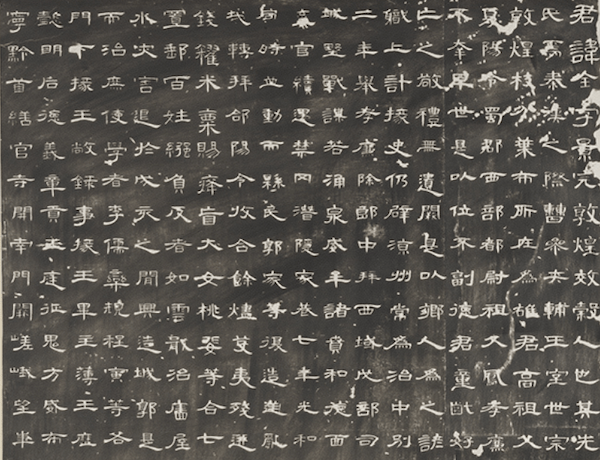 君諱全字景完敦煌效穀人也其先
氏焉秦漢之際曹參夾輔王室世宗
敦煌枝分葉布所在為雄君高祖父
夏陽令蜀郡西部都尉祖父鳳孝廉
不幸早世是以位不副德君童齔好
亡之敬禮無遺闕是以鄉人為之諺
職上計掾史仍辟涼州常為治中別
二年舉孝廉除郎中拜西域戊部司
城野戰謀若涌泉威牟諸賁和德面
弃官續遇禁网潛隱家巷七年光和
同時並動而縣民郭家等復造逆亂
戈轉拜郃陽令收合餘燼芟夷殘迸
錢糴米粟賜癃盲大女桃婓等合七
置郵百姓繈負反者如雲戢治廧屋
水灾害退於戌亥之間興造城郭是
而治庶使學者李儒欒規程寅等各
門下掾王敞錄事掾王畢主薄王歷
懿明后德義章貢王庭征鬼方威布
寧黔首繕官寺開南門闕嵯峨望華